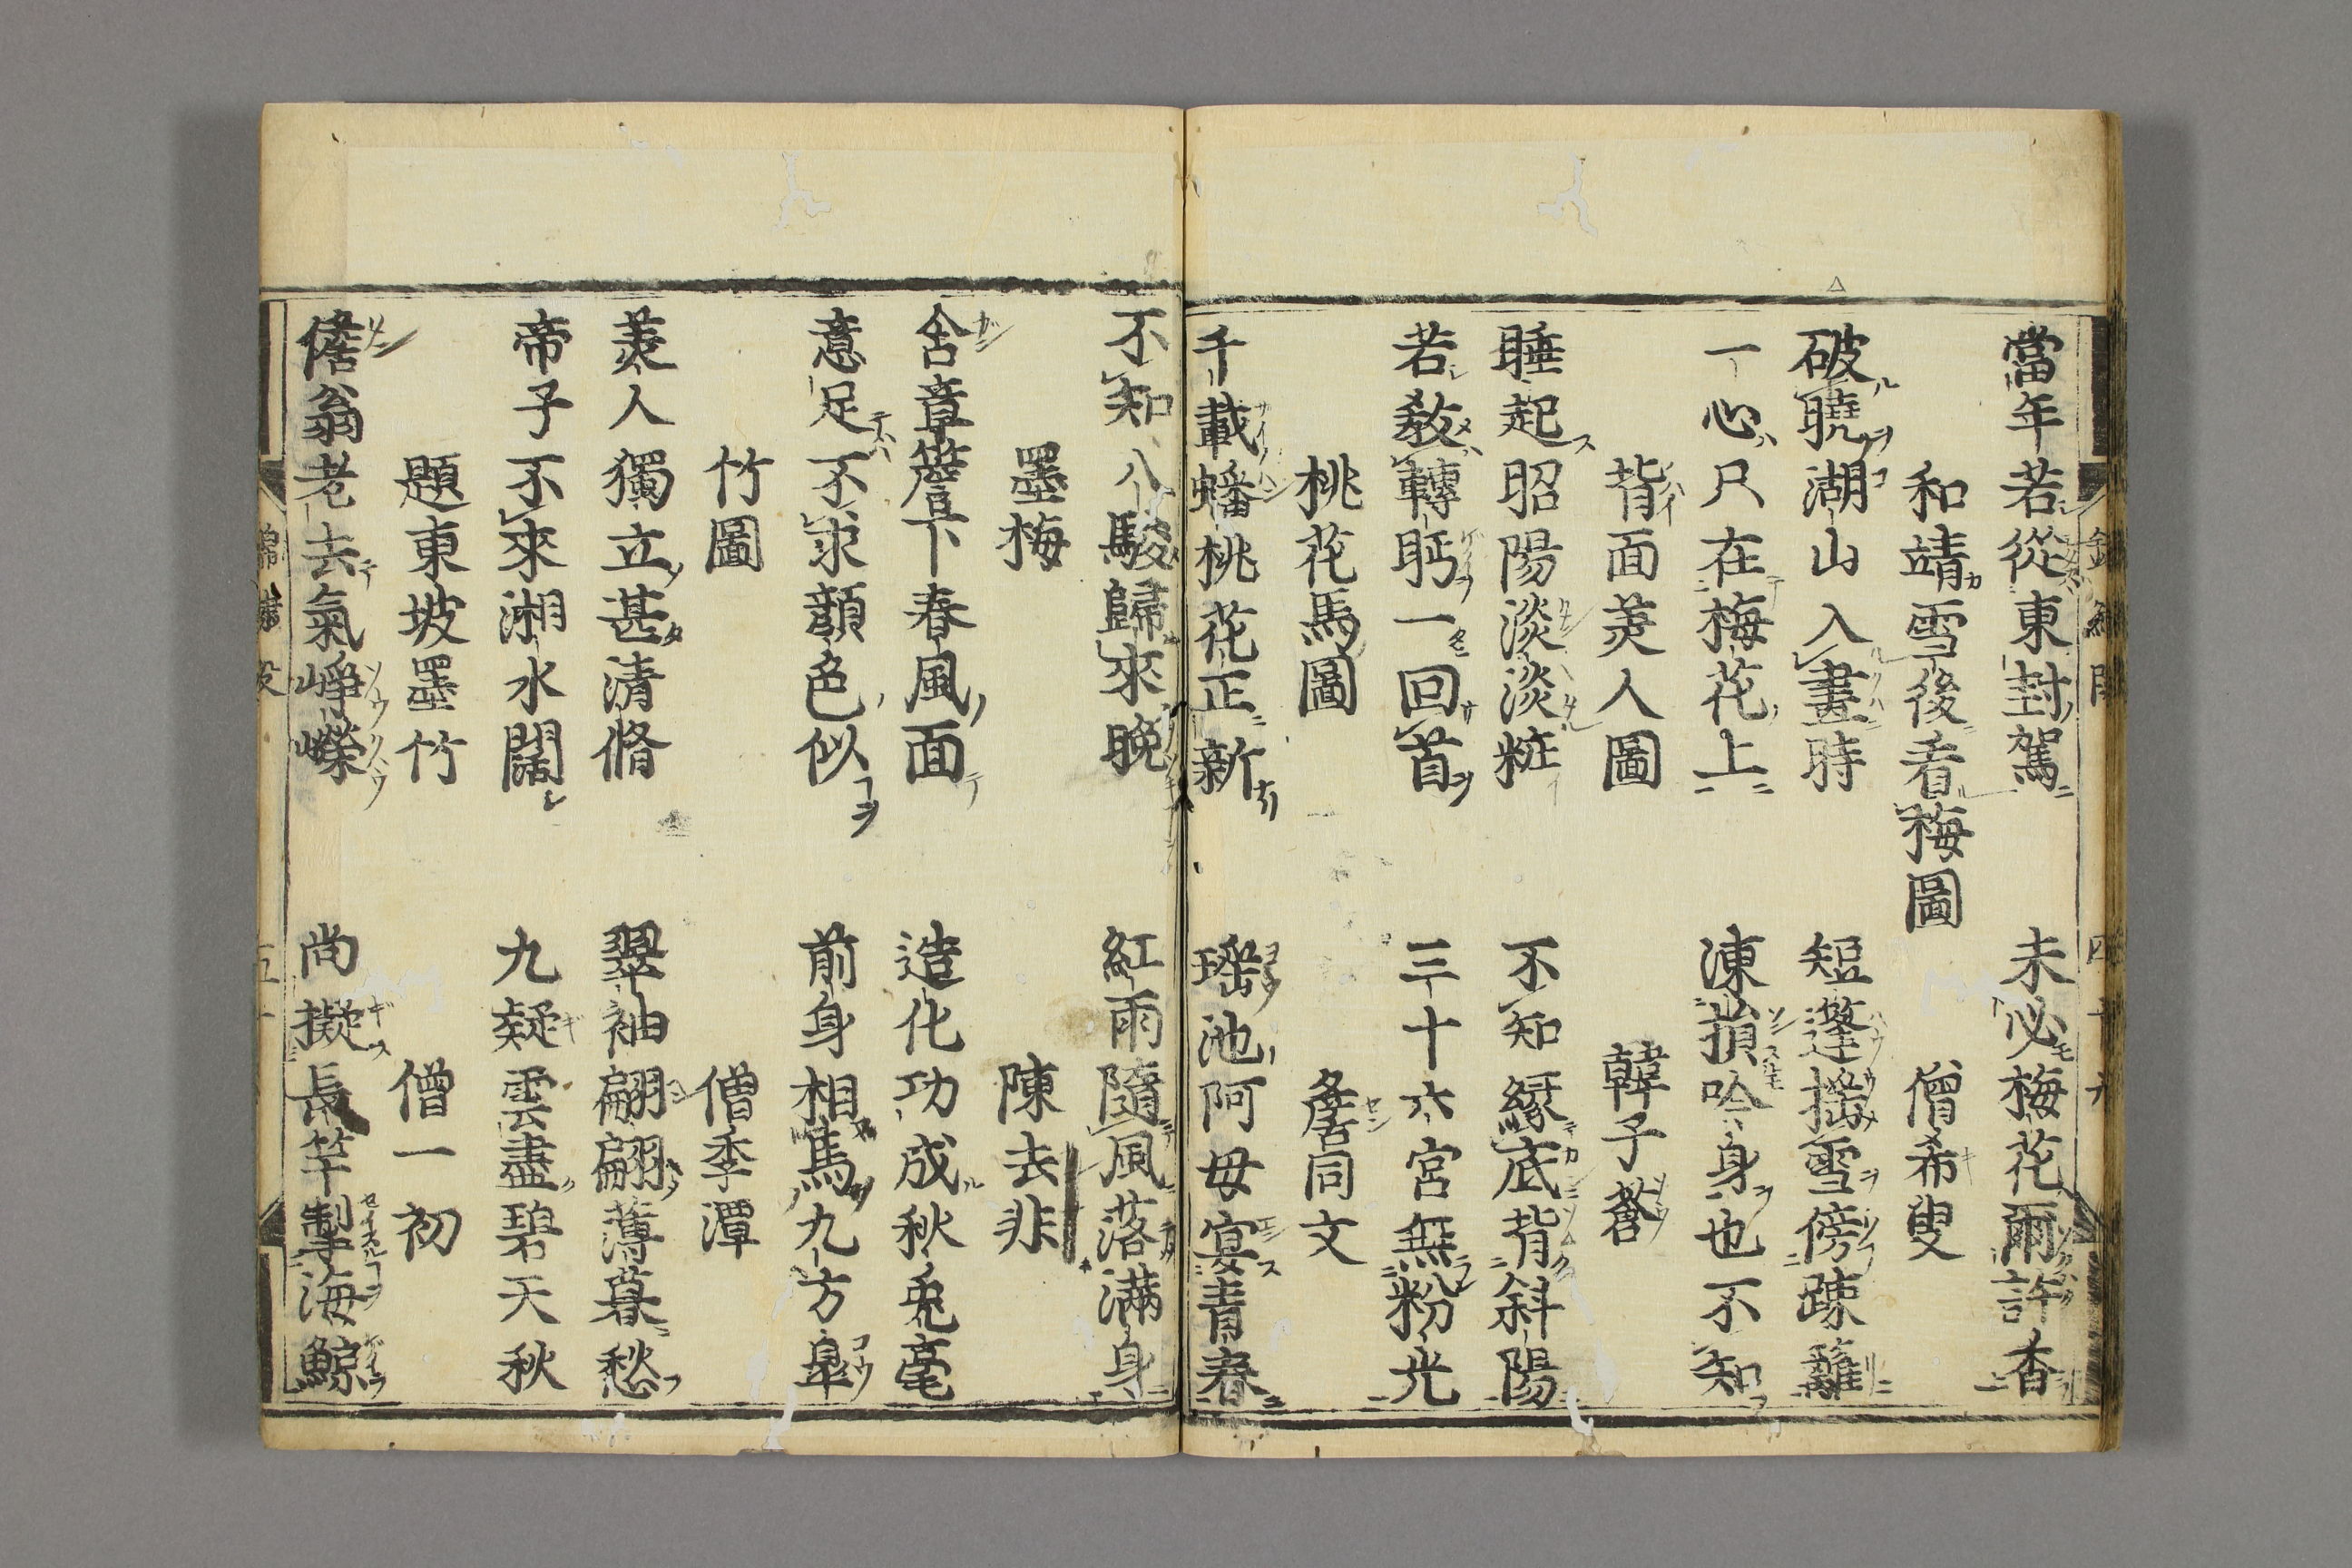 當年若從東封駕 未必梅花爾許香
和靖雪後看梅圖 僧希叟
破曉湖山入畫時 短蓬搖雪傍踈籬
一心只在梅花上 凍損吟身也不知
背面美人圖 韓子蒼
睡起昭陽淡淡粧 不知緣底背斜陽
若教轉眄一回首 三十六宮無粉光
桃花馬圖 詹同文
千載蟠桃花正新 瑤池阿母宴青春
不知八駿歸來晚 紅雨隨風落滿身
墨梅 陳去非
含章簷下春風面 造化功成秋兎毫
意足不求顏色似 前身相馬九方皐
竹圖 僧季潭
美人獨立甚清脩 翠袖翩翩薄暮愁
帝子不來湘水闊 九疑雲盡碧天秋
題東坡墨竹 僧一初
儋翁老去氣崢嶸 尚擬長竿掣海鯨